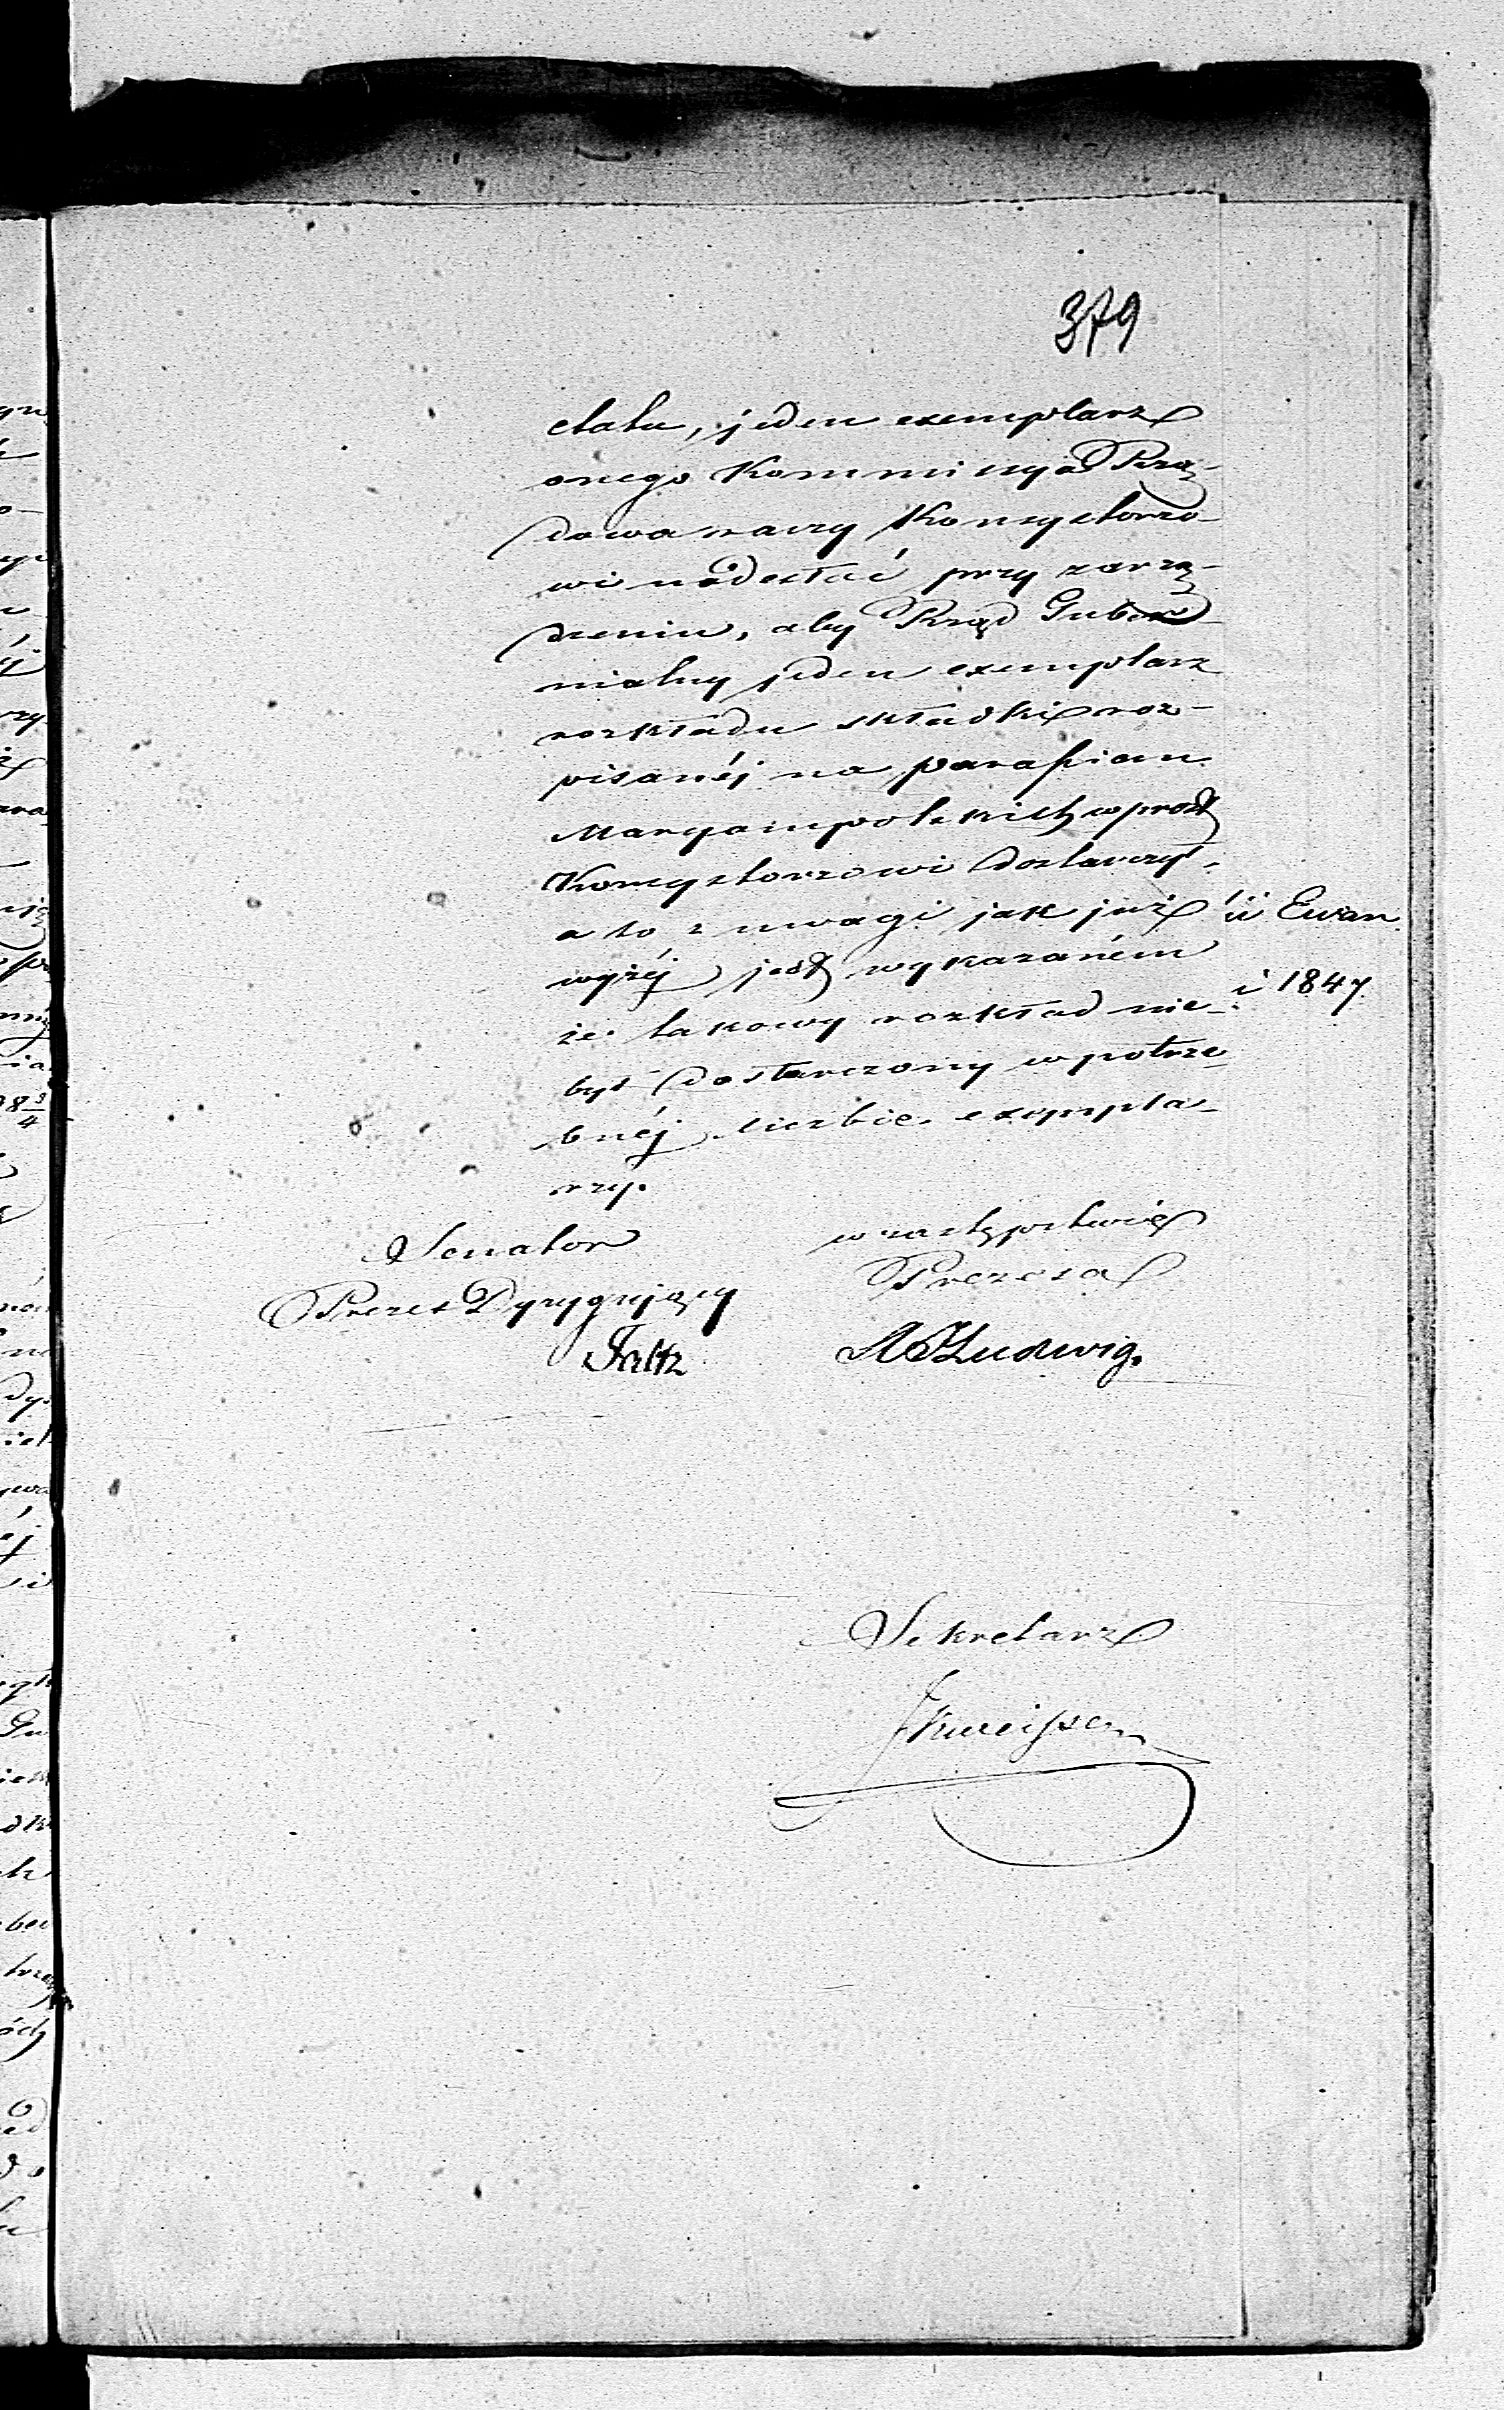 379
etatu, jeden exemplarz
onego Kommissya Rzą-
dowa raczy Konsystorzo-
wi nadesłać przy zarzą-
dzeniu, aby Rząd Guber-
nialny jeden exemplarz
rozkładu składki roz-
pisanéj na parafian
Maryampolskich wprost
Konsystorzowi dostarczył,
a to z uwagi jak już
wyżéj jest wykazaném
że takowy rozkład nie
był dostarczony w potrze-
bnéj liczbie exempla-
rzy.
Ewan
i 1847
Senator
Prezes Dyrygujący
w zastępstwie
Prezesa
Ludwig.
Sekretarz